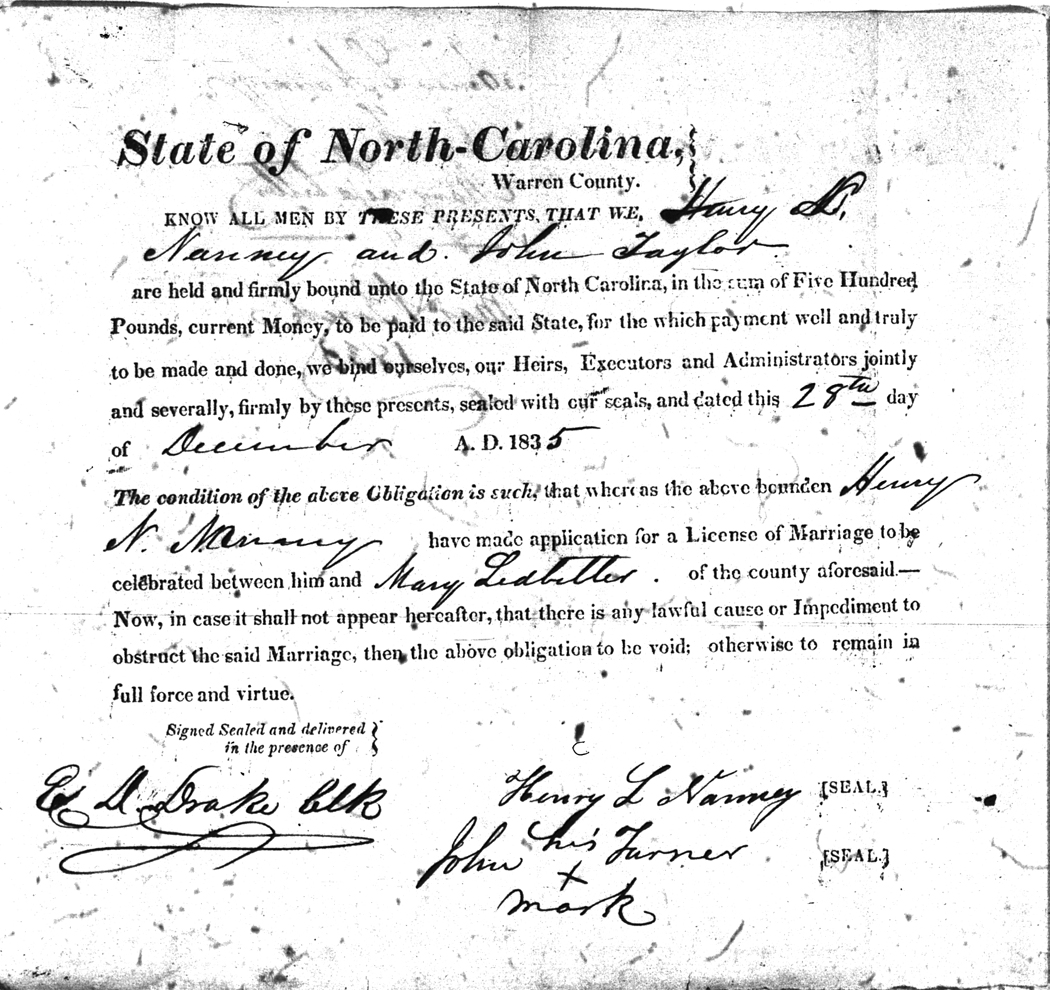 State of North-Carolina,
Warren County.
KNOW ALL MEN BY THESE PRESENTS, THAT WE, Henry N.
Nanney and John Taylor
are held and firmly bound unto the State of North Carolina, in the sum of Five Hundred
Pounds, current Money, to be paid to the said State, for the which payment well and truly
to be made and done, we bind ourselves, our Heirs, Executors and Administrators jointly
and severally, firmly by these presents, sealed with our seals, and dated this 28th day
of December A. D. 1835
The condition of the above Obligation is such, that whereas the above bounden Henry
N. Nanney have made application for a License of Marriage to be
celebrated between him and Mary Ledbetter. of the county aforesaid.—
Now, in case it shall not appear hereafter, that there is any lawful cause or Impediment to
obstruct the said Marriage, then the above obligation to be void; otherwise to remain in
full force and virtue.
Signed Sealed and delivered
in the presence of
Drake Clk
Henry L Nanney [SEAL.]
John his Turner [SEAL.]
x
mark